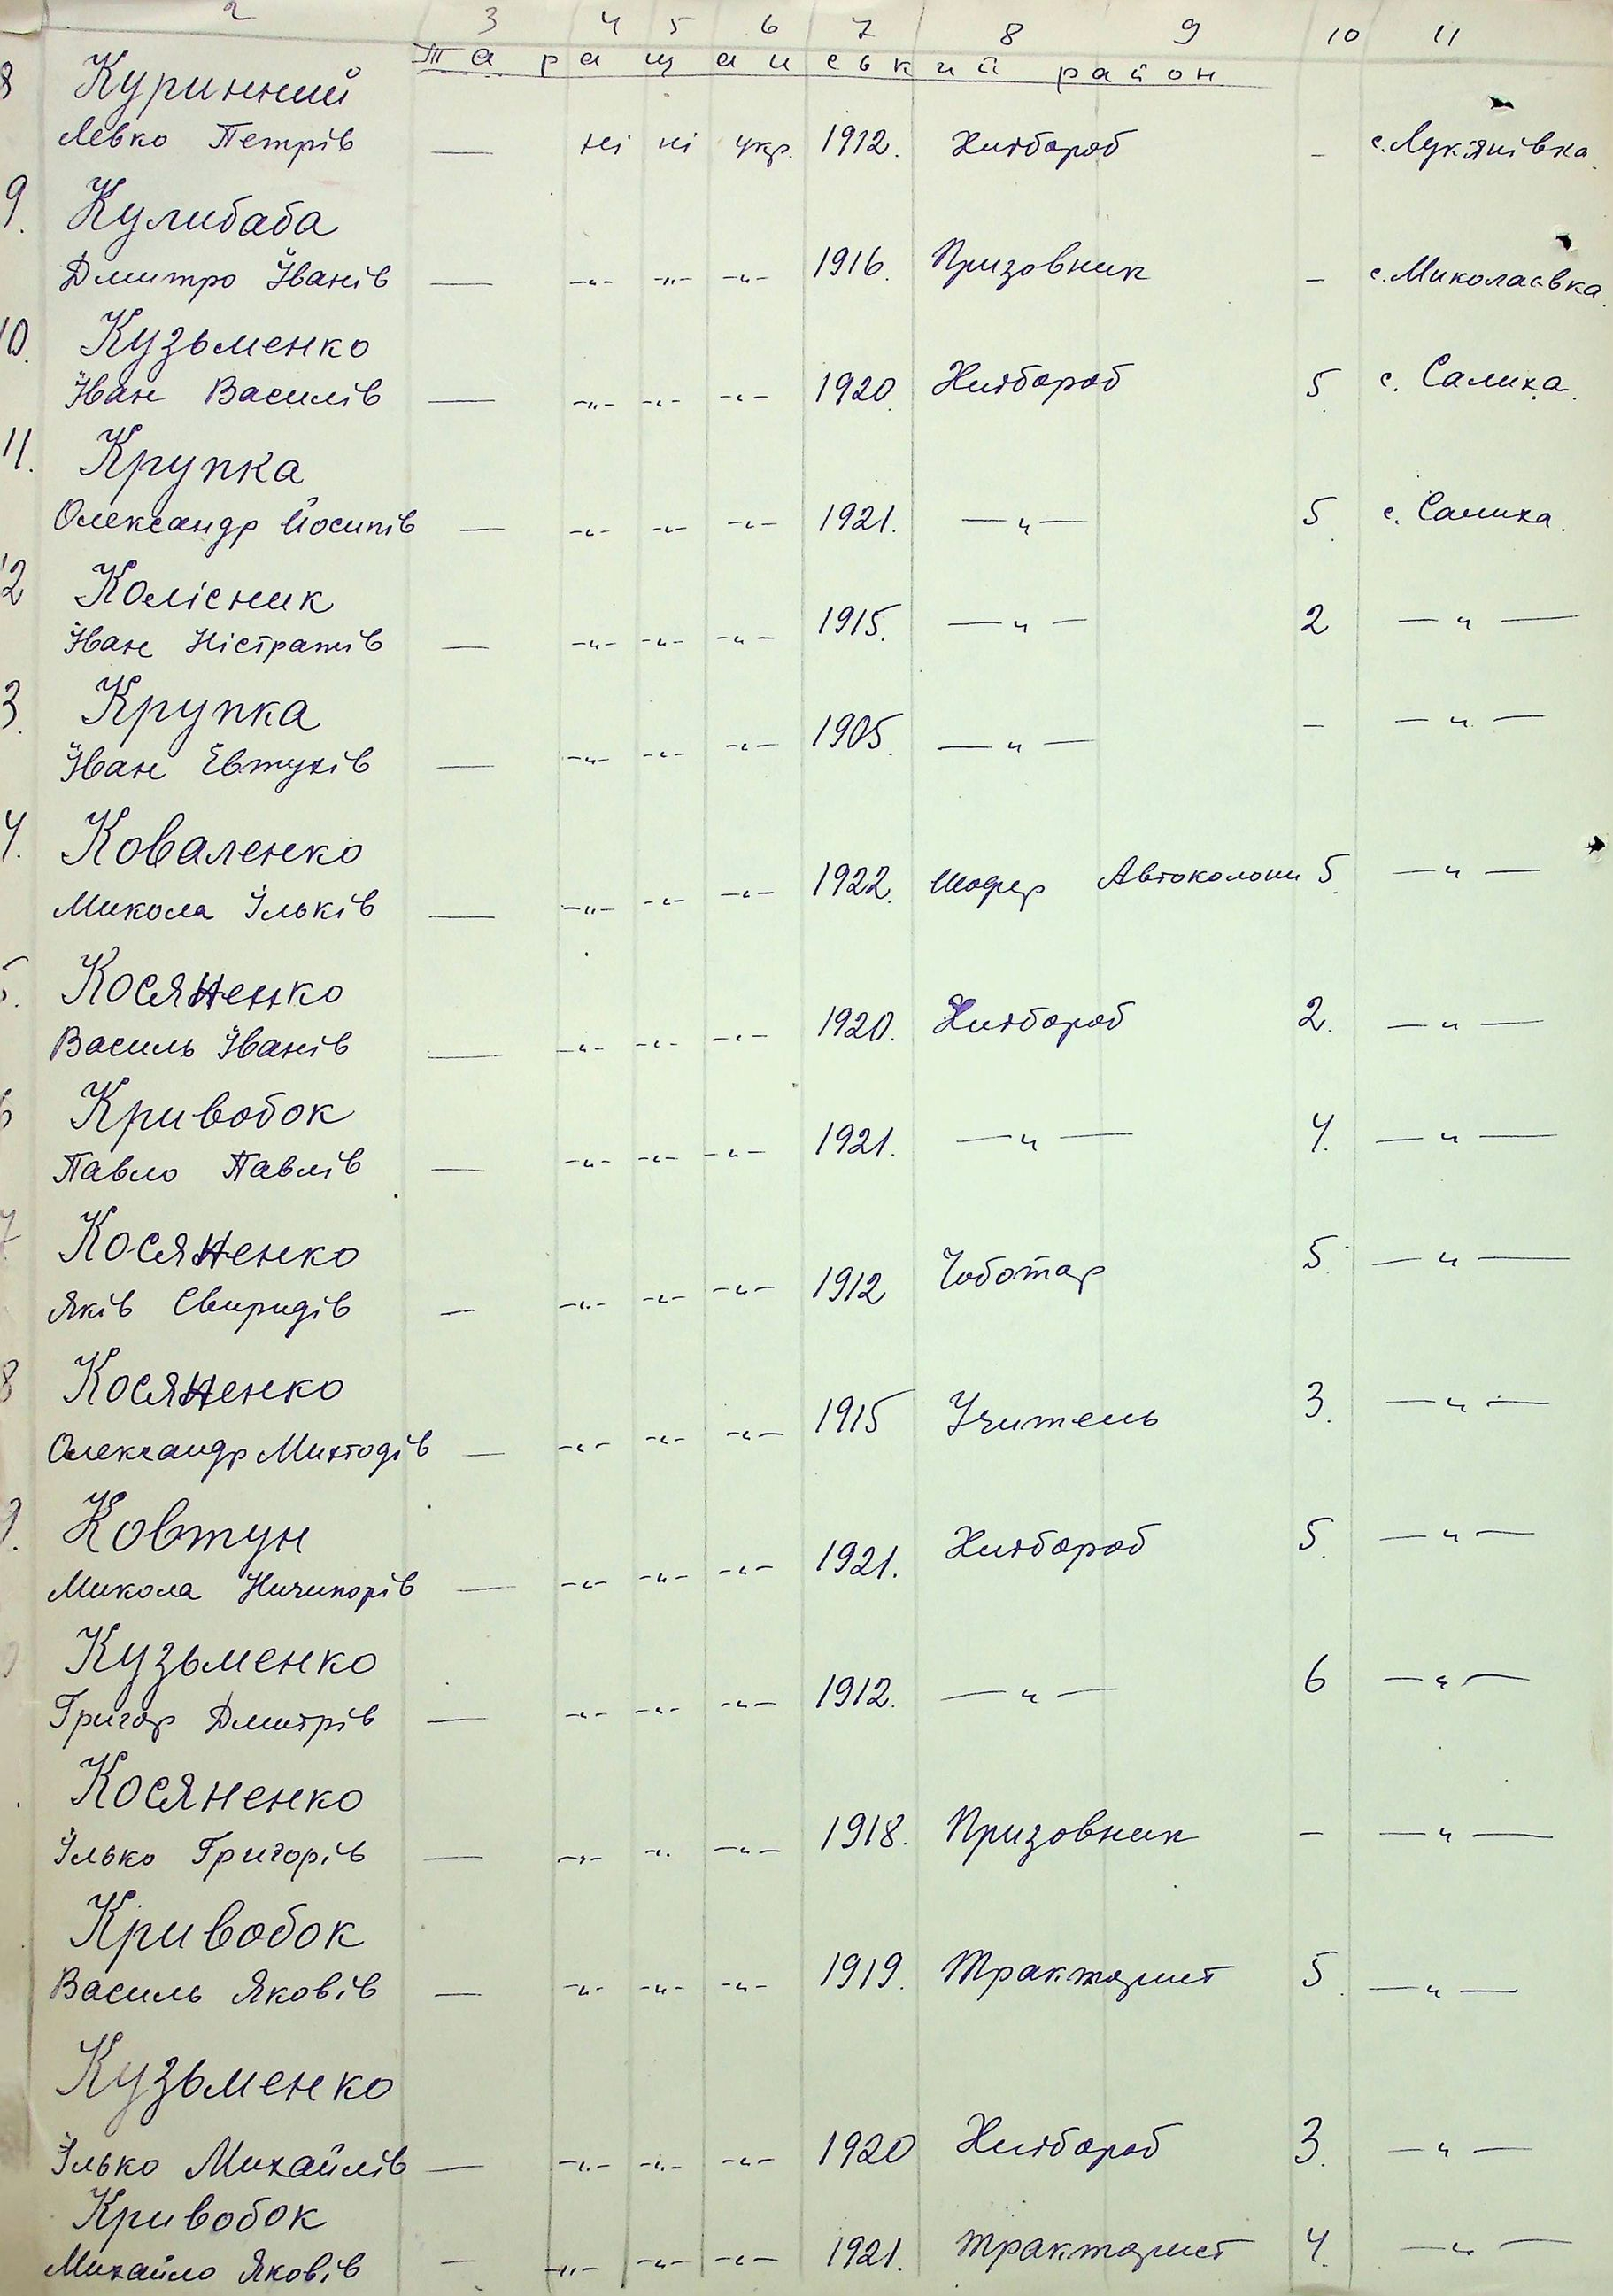 2 3 4 5 6 7 8 9 10 11
Таращанський район
8 Куринний
Левко Петрів — ні ні укр. 1912. Хлібороб – с. Лук'янівка.
9. Кулибаба
Дмитро Іванів — -"- -"- -"- 1916. Призовник – с. Миколаєвка.
10. Кузьменко
Іван Василів — -"- -"- -"- 1920. Хлібороб 5 с. Салиха.
11. Крупка
Олександр Йосипів — -"- -"- -"- 1921. —"— 5 с. Салиха.
12 Колісник
Іван Ністратів — -"- -"- -"- 1915. —"— 2 —"—
3. Крупка
Іван Євтухів — -"- -"- -"- 1905. —"— – —"—
4. Коваленко
Микола Ільків — -"- -"- -"- 1922. Шофер Автоколони 5. —"—
5. Косяненко
Василь Іванів — -"- -"- -"- 1920. Хлібороб 2. —"—
6 Кривобок
Павло Павлів — -"- -"- -"- 1921. —"— 4. —"—
7 Косяненко
Яків Свиридів — -"- -"- -"- 1912 Чоботар 5. —"—
8 Косяненко
Олександр Михтодів — -"- -"- -"- 1915 Учитель 3. —"—
9. Ковтун
Микола Ничипорів — -"- -"- -"- 1921. Хлібороб 5. —"—
Кузьменко
Григор Дмитрів — -"- -"- -"- 1912. —"— 6 —"—
Косяненко
Ілько Григорів — -"- -"- -"- 1918. Призовник – —"—
Кривобок
Василь Яковів — -"- -"- -"- 1919. Тракторист 5. —"—
Кузьменко
Ілько Михайлів — -"- -"- -"- 1920 Хлібороб 3. —"—
Кривобок
Михайло Яковів — -"- -"- -"- 1921. Тракторист 4. —"—